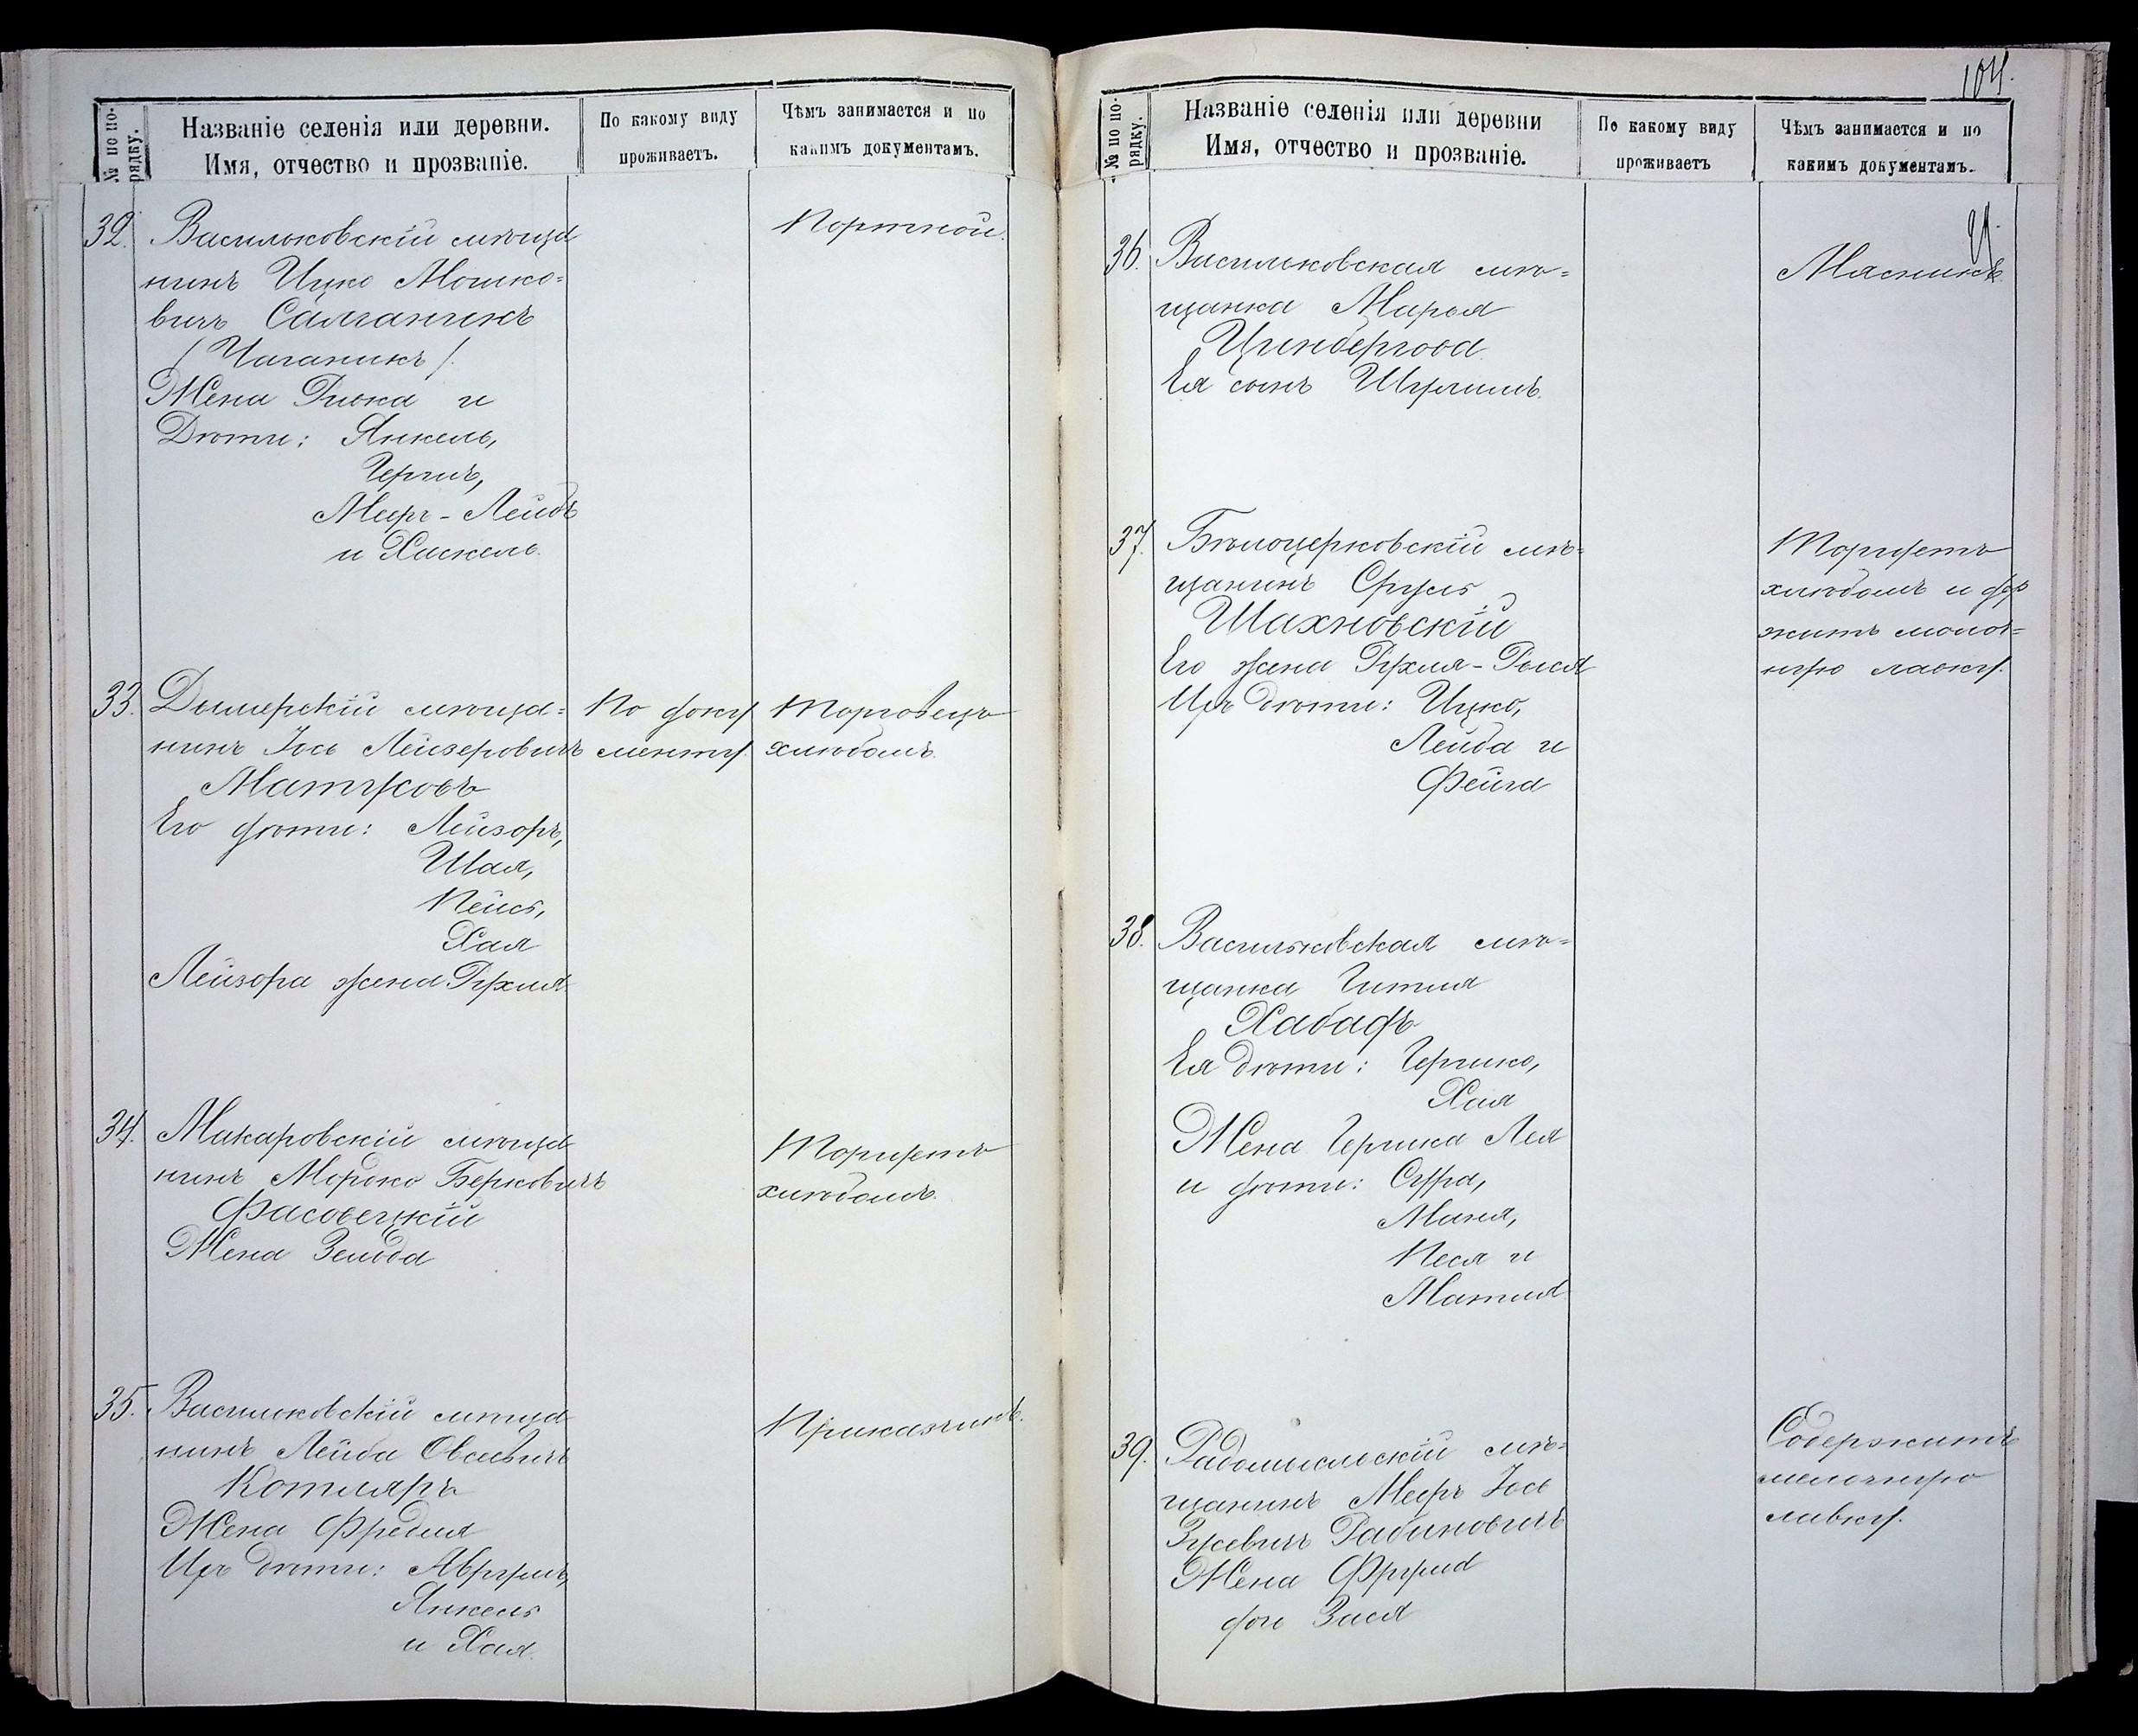 № по по-
рядку.
Названіе селенія или деревни.
Имя, отчество и прозваніе.
По какому виду
проживаетъ.
Чѣмъ занимается и по
какимъ документамъ.
32. Васильковскій мѣща
нинъ Ицко Мошко=
вичъ Салганикъ
/Чаганикъ/.
Жена Ривка и
Дѣти: Янкель,
Гершъ,
Меер-Лейбъ
и Хаскель.
Портной.
33. Дымерскій мѣща=
нинъ Іось Лейзеровичъ
Матусовъ
Его дѣти: Лейзоръ,
Шая,
Пейсъ,
Хая
Лейзора жена Рухля.
По доку
менту.
Торговецъ
хлѣбомъ.
34. Макаровскій мѣща
нинъ Мордко Берковичъ
Фасовецкій
Жена Зельда
Торгуетъ
хлѣбомъ.
35. Васильковскій мѣща
нинъ Лейба Овсевичъ
Котляръ
Жена Фрейдля
Ихъ дѣти: Аврумъ,
Янкель
и Хая.
Приказчикъ.
104.
№ по по-
рядку.
Названіе селенія или деревни
Имя, отчество и прозваніе.
По какому виду
проживаетъ
Чѣмъ занимается и по
какимъ документамъ.
36. Васильковская мѣ=
щанка Марья
Цинбергова.
Ея сынъ Шулимъ.
Мясникъ.
37. Бѣлоцерковскій мѣ=
щанинъ Сруль
Шахновскій
Его жена Рухля-Рися
Ихъ дѣти: Ицко,
Лейба и
Фейга
Торгуетъ
хлѣбомъ и дер
житъ мелоч=
ную лавку.
38. Васильковская мѣ=
щанка Гитля
Хабадъ
Ея дѣти: Гершко,
Хая
Жена Гершка Лея
и дѣти: Сура,
Маня,
Песя и
Матля
39. Радомысльскій мѣ=
щанинъ Меер Іось
Зусевичъ Рабиновичъ
Жена Фрума
дочь Зися
Содержитъ
мелочную
лавку.